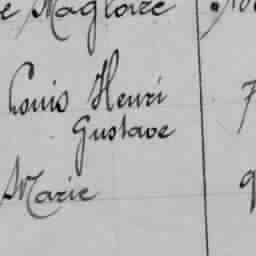 e Magloire
Louis Henri 7
Gustave
Marie 9